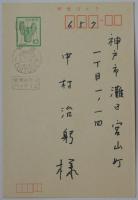 郵便はがき
657
神戸市灘区宮山町
一丁目一ノ一四
中村治躬様